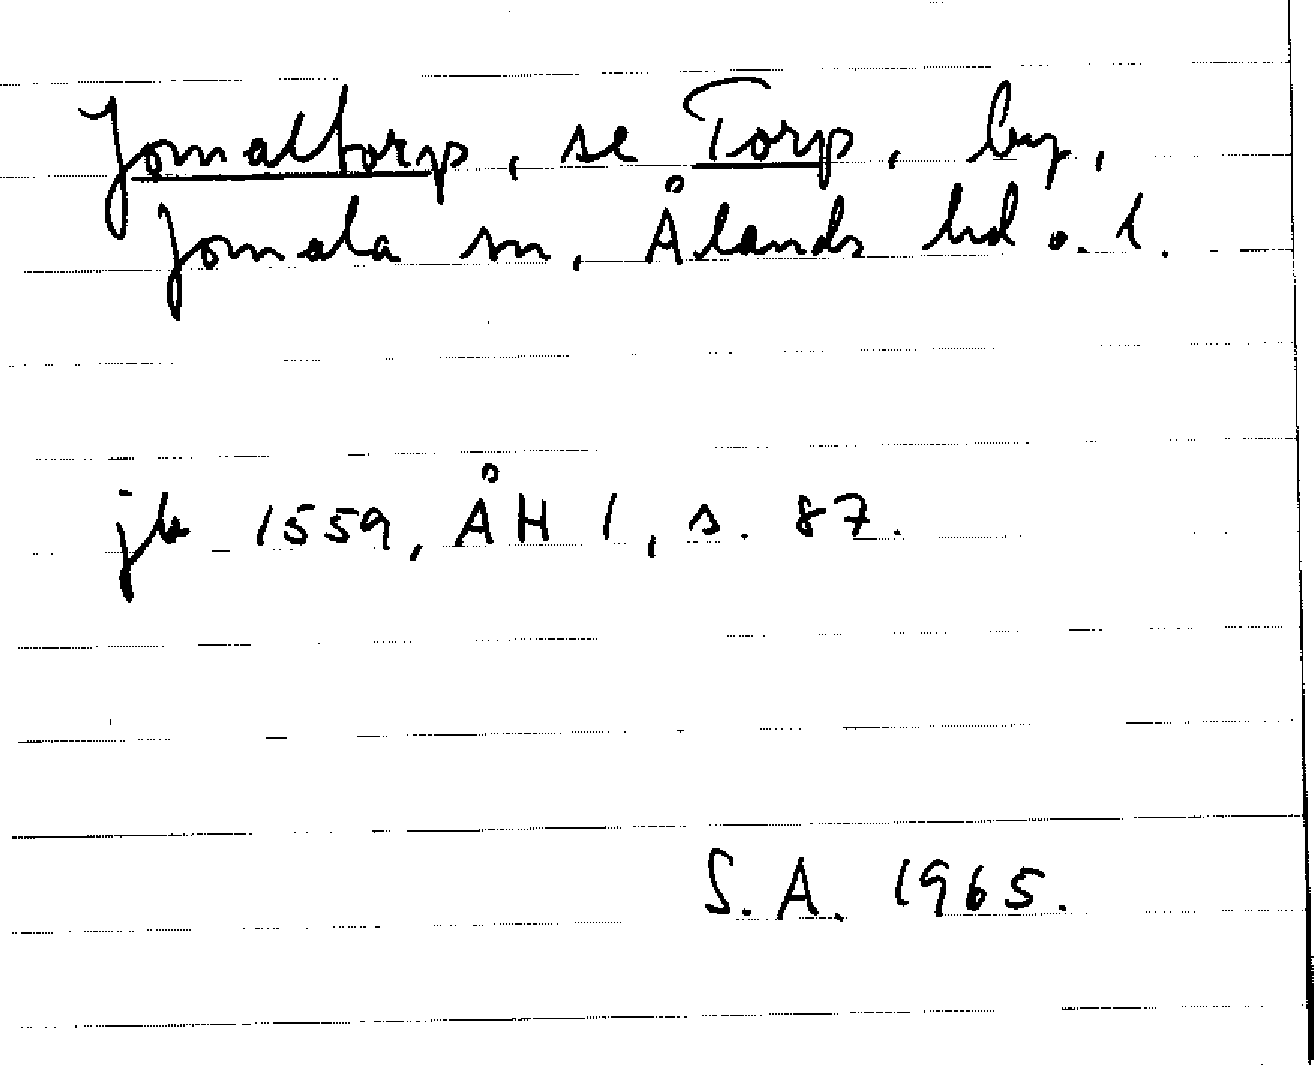 Jomaltorp, se Torp, by,
Jomala sn, Ålands hd o. l.
jb 1559, ÅH 1, s. 87.
S. A. 1965.